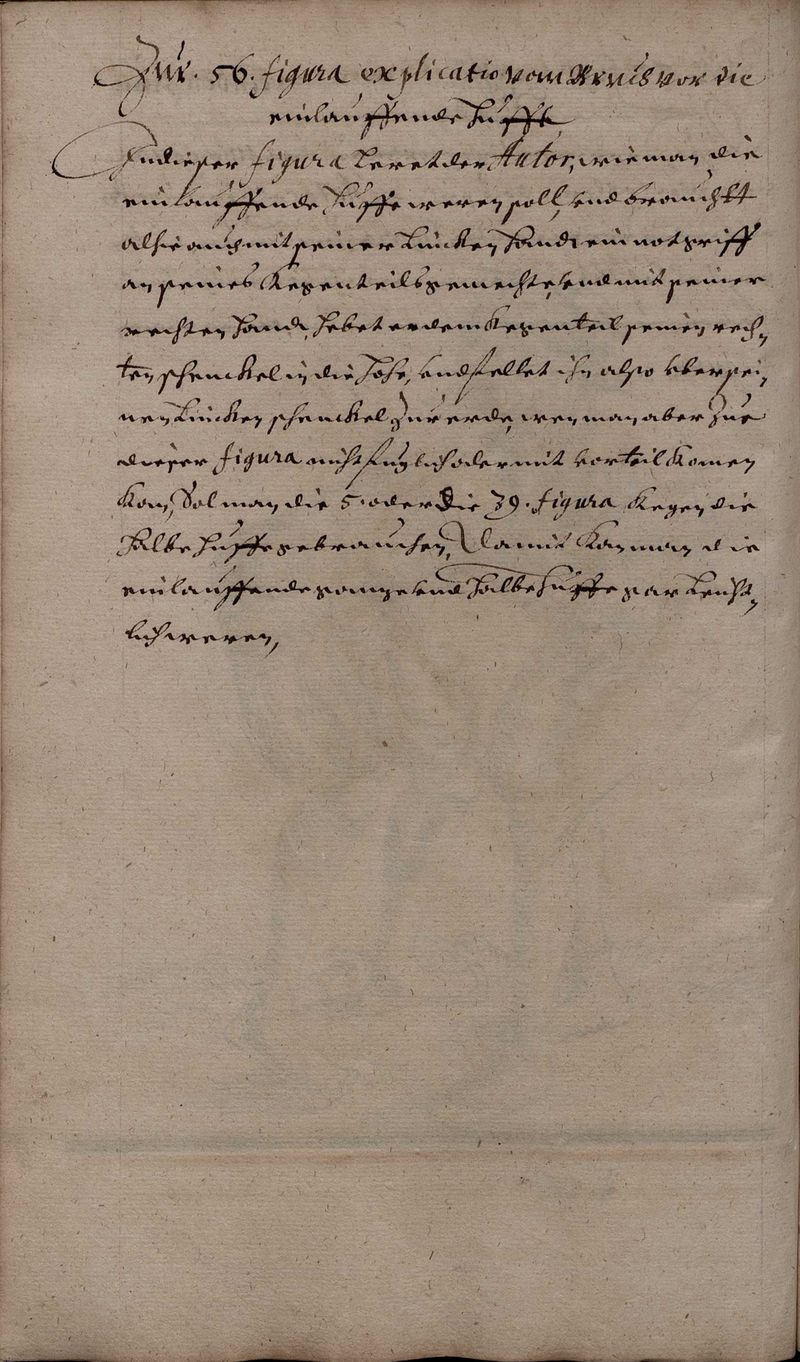 Zur. 56. figura explicatio vom Bruch vor die
einlauffende Huffe
In dieser figura leret der Autor, wie man die
einlauffende Huffe weren soll, vnd braucht
alhie auch mit seiner Lincken Handt ein notgriff
an seines Kegenteils gemechte, vnd mit seiner
rechten Handt, hebet er dem Kegenteil seinen rech¬
ten schenckel in die Höhe, vnd fellet ihn also vber sei¬
nen Lincken schenckel Zur erde, wen man aber Zue
dieser figura nicht fuglich oder mit vorteil Komen
Kan, Sol man die 5. oder die 39. figura Kegen die
Halbe Huffe gebrauchen, Damit Kan man die
einlauffende gantze vnd Halbe Huffe gar Leicht¬
lich weren,